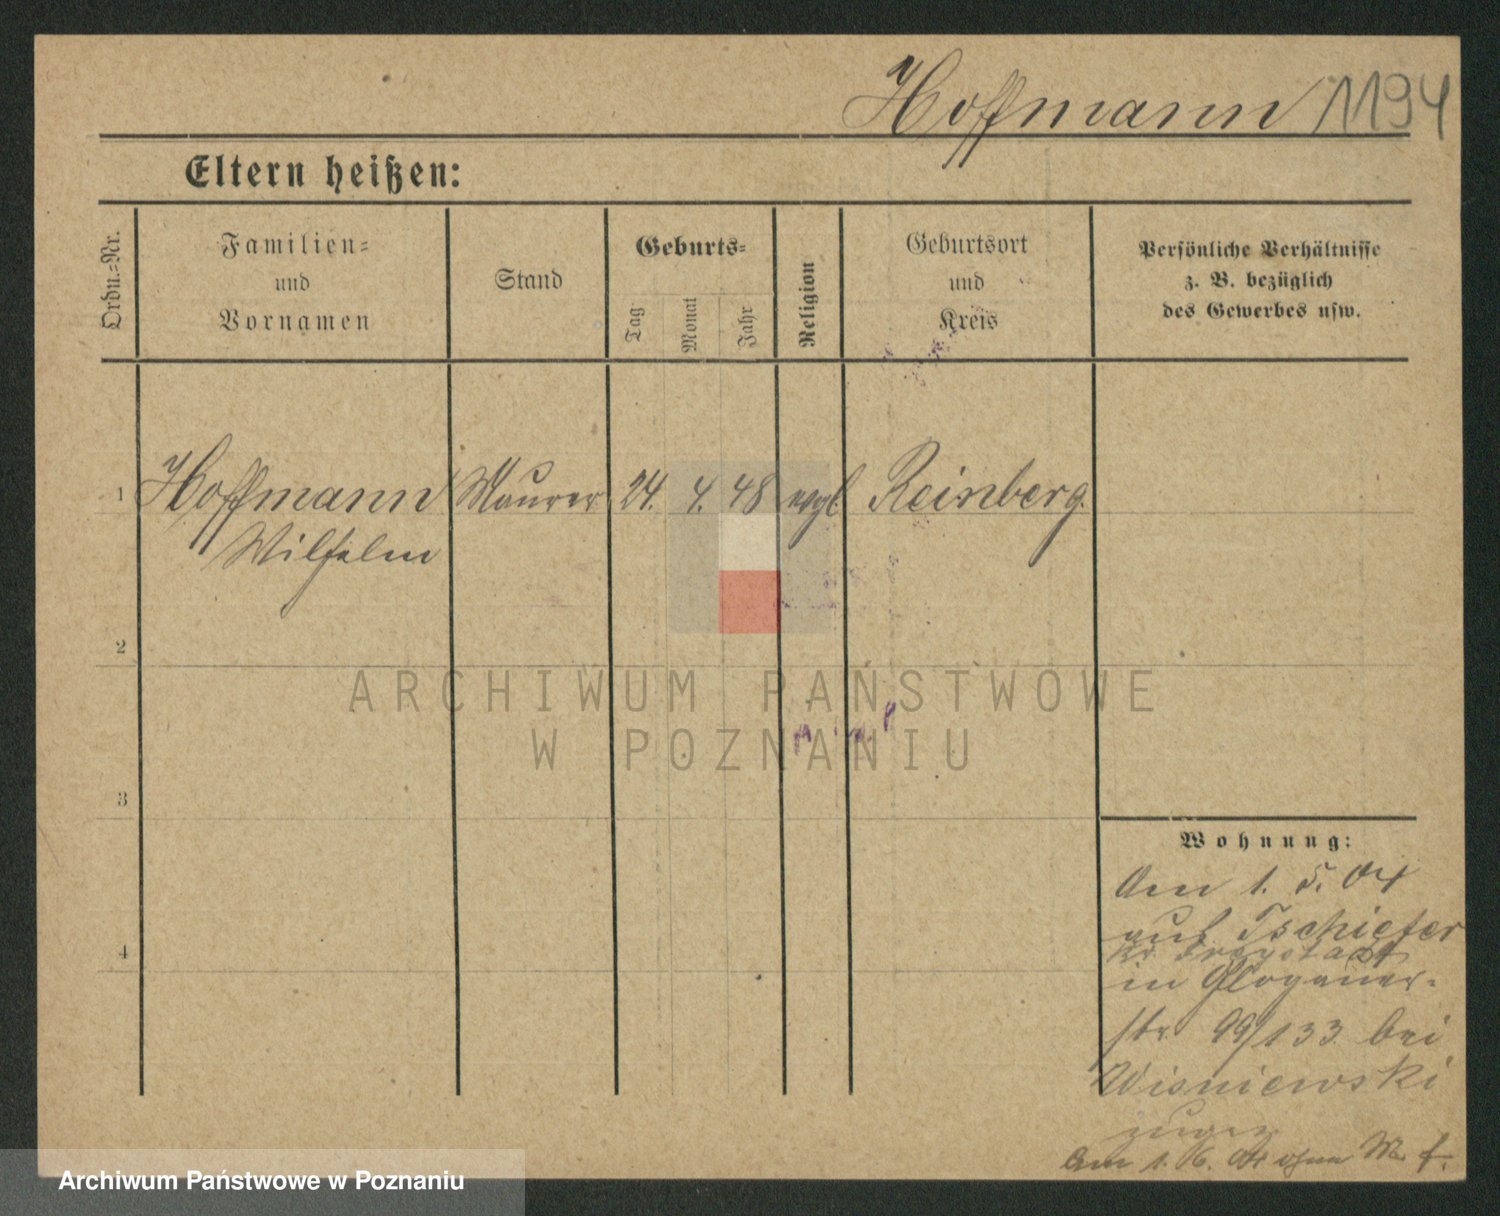 Hoffmann 1194
Eltern heißen:
Ordn.=Nr.
Familien=
und
Vornamen
Stand
Geburts=
Tag
Monat
Jahr
Religion
Geburtsort
und
Kreis
Persönliche Verhältnisse
z. B. bezüglich
des Gewerbes usw.
1 Hoffmann Maurer 24. 4. 48 evgl Reinberg
Wilhelm
2
ARCHIWUM PAŃSTWOWE
W POZNANIU
3
4
Wohnung:
Am 1. 5. 04
aus Tschiefer
Kr Freystadt
in Glogauer-
str 99/133 bei
Wisniewski
zugez
Am 1. 6. 04
Archiwum Państwowe w Poznaniu